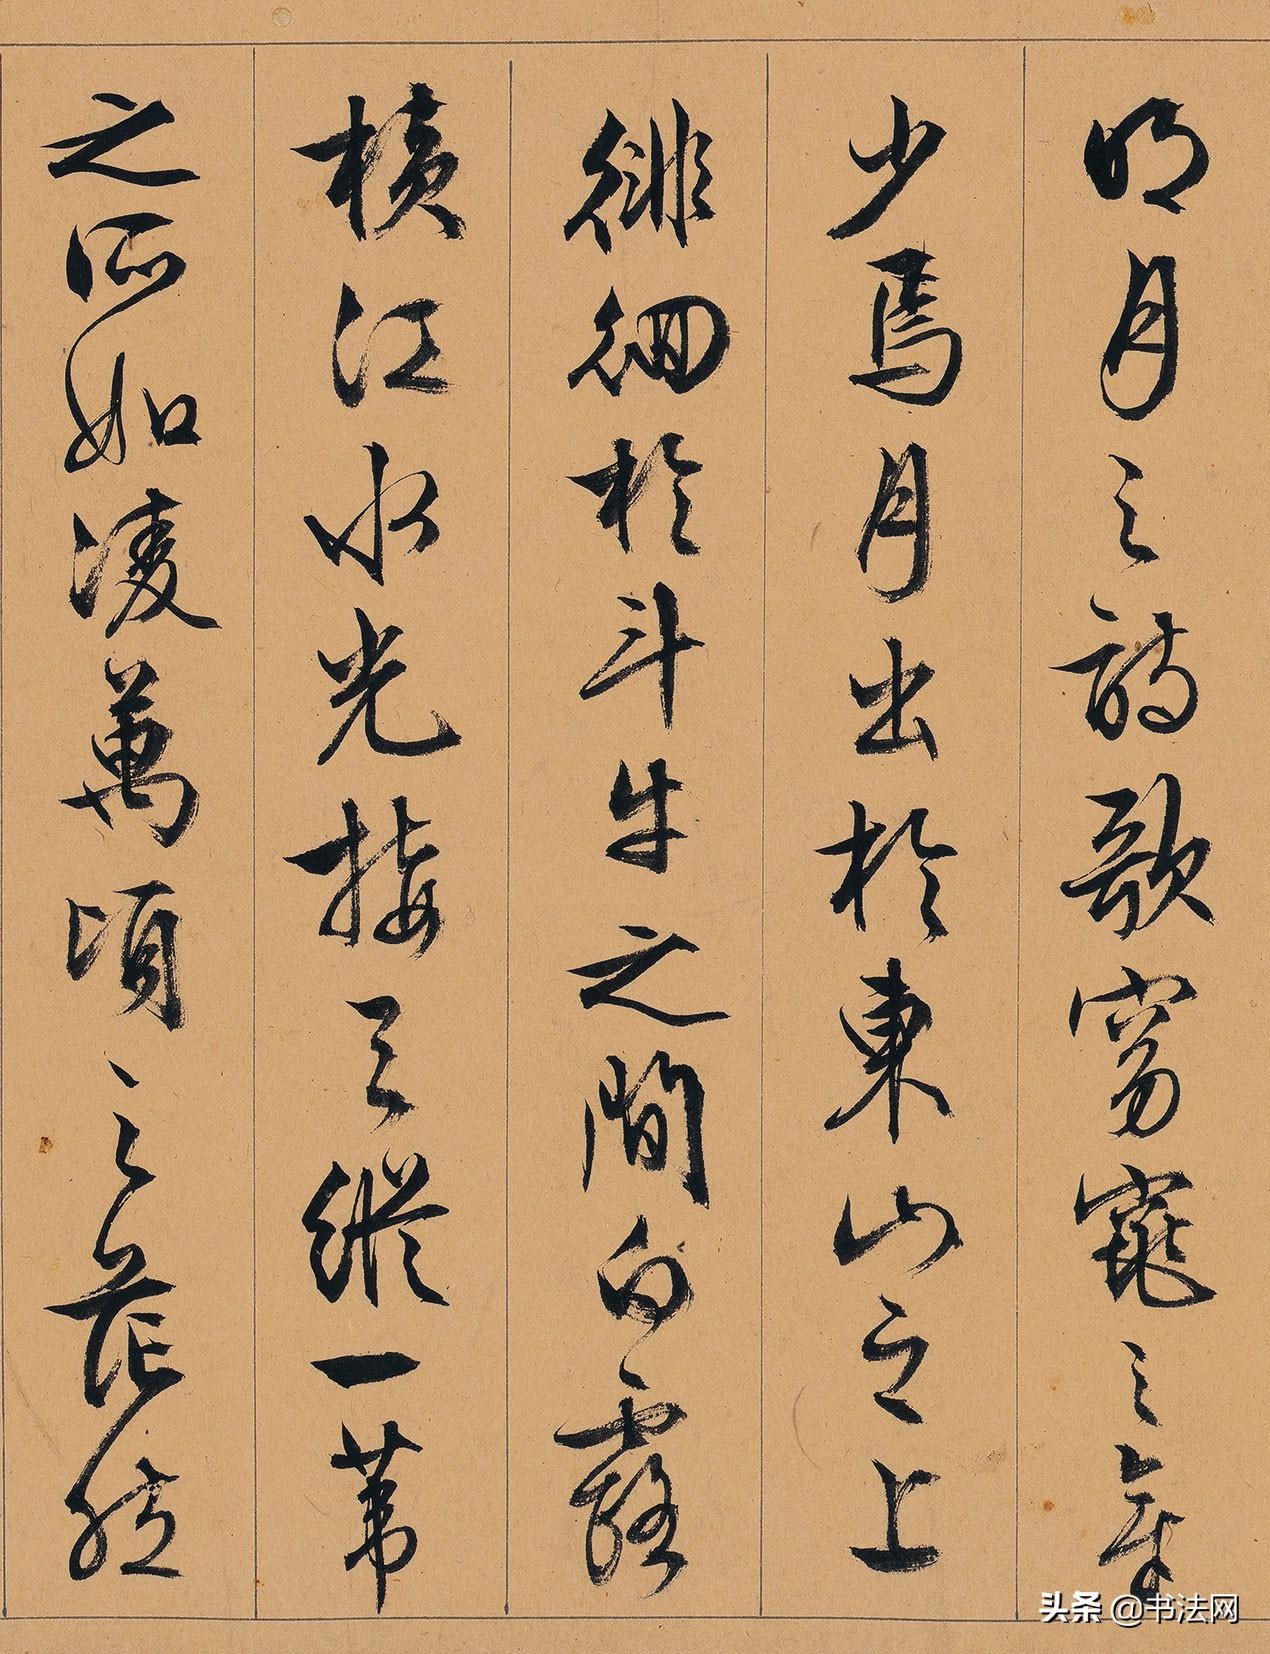 明月之詩歌窈窕之章
少焉月出於東山之上
徘徊於斗牛之間白露
橫江水光接天縱一葦
之所如凌萬頃之茫然
头条 @书法网